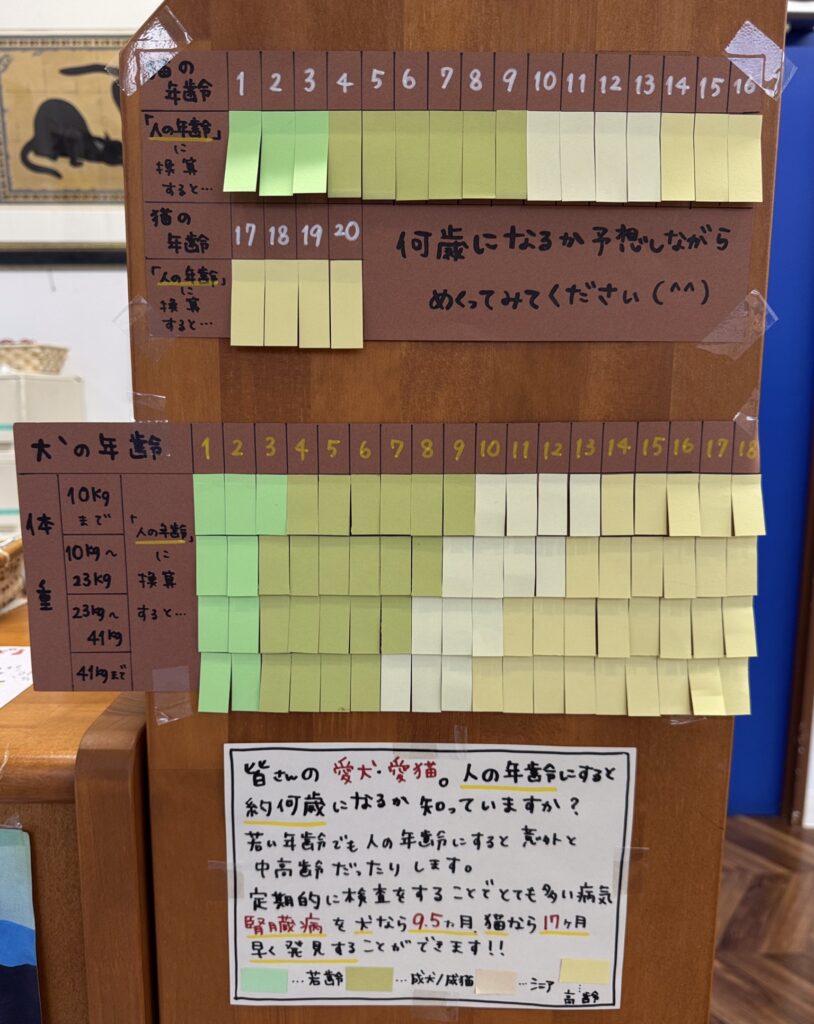 猫の
年齢
1 2 3 4 5 6 7 8 9 10 11 12 13 14 15 16
「人の年齢」
に
換算
すると…
猫の
年齢
17 18 19 20
「人の年齢」
に
換算
すると…
何歳になるか予想しながら
めくってみてください(^^)
犬の年齢
1 2 3 4 5 6 7 8 9 10 11 12 13 14 15 16 17 18
体重
10kg
まで
10kg〜
23kg
23kg〜
41kg
41kgまで
「人の年齢」
に
換算
すると…
皆さんの 愛犬・愛猫。人の年齢にすると
約何歳になるか 知っていますか?
若い年齢でも人の年齢にすると 意外と
中高齢だったりします。
定期的に検査をすることでとても多い病気
腎臓病を犬なら9.5ヵ月、猫なら17ヶ月
早く発見することができます!!
…若齢 …成犬/成猫 …シニア …高齢